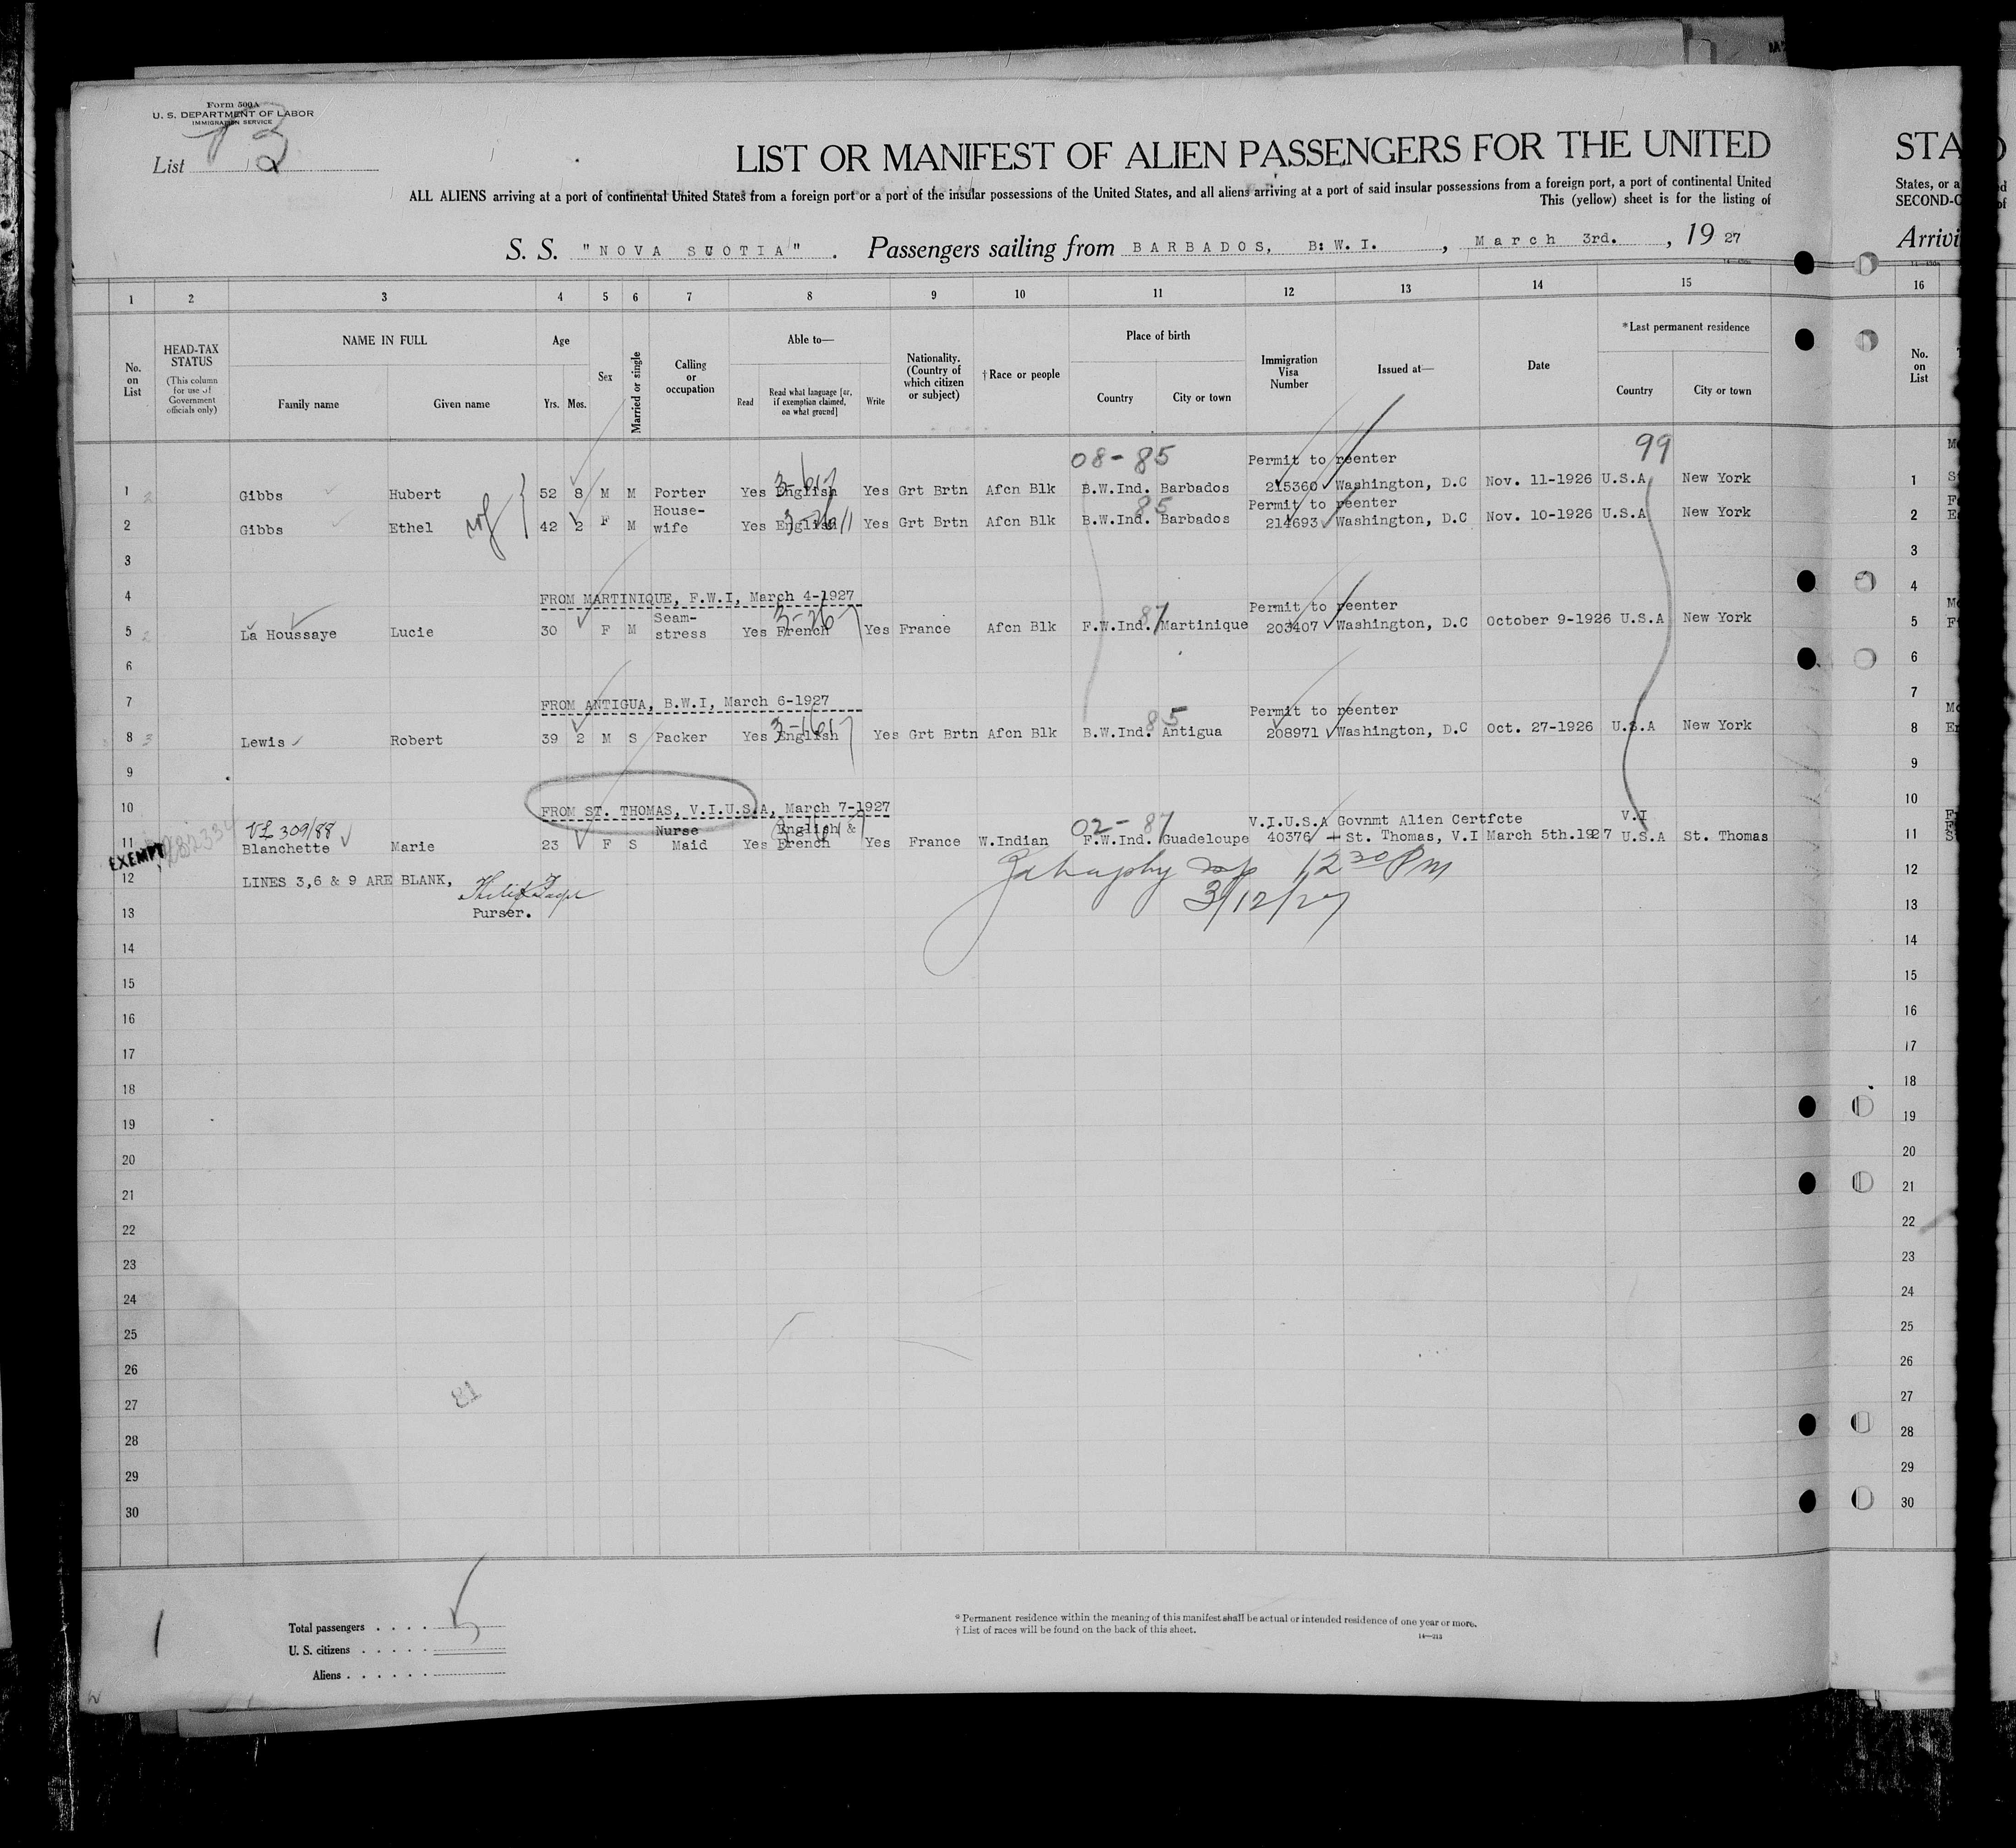 Form 500A
U. S. DEPARTMENT OF LABOR
IMMIGRATION SERVICE
List 13
LIST OR MANIFEST OF ALIEN PASSENGERS FOR THE UNITED
ALL ALIENS arriving at a port of continental United States from a foreign port or a port of the insular possessions of the United States, and all aliens arriving at a port of said insular possessions from a foreign port, a port of continental United
This (yellow) sheet is for the listing of
S. S. "NOVA SCOTIA" . Passengers sailing from BARBADOS, B: W. I. , March 3rd. , 19 27
STA
States, or a
SECOND-C
Arrivi
1 2 3 4 5 6 7 8 9 10 11 12 13 14 15 16
No. on List
HEAD-TAX STATUS (This column for use of Government officials only)
NAME IN FULL
Family name Given name
Age
Yrs. Mos.
Sex
Married or single
Calling or occupation
Able to—
Read
Read what language [or, if exemption claimed, on what ground]
Write
Nationality. (Country of which citizen or subject)
† Race or people
Place of birth
Country City or town
Immigration Visa Number
Issued at—
Date
* Last permanent residence
Country City or town
No. on List
08-85 99
Permit to reenter
1 Gibbs Hubert 52 8 M M Porter Yes English Yes Grt Brtn Afcn Blk B.W.Ind. Barbados 215360 Washington, D.C Nov. 11-1926 U.S.A New York 1
House- 85 Permit to reenter
2 Gibbs Ethel 42 2 F M wife Yes English Yes Grt Brtn Afcn Blk B.W.Ind. Barbados 214693 Washington, D.C Nov. 10-1926 U.S.A New York 2
3 3
4 FROM MARTINIQUE, F.W.I, March 4-1927 4
Seam- 87 Permit to reenter
5 La Houssaye Lucie 30 F M stress Yes French Yes France Afcn Blk F.W.Ind. Martinique 203407 Washington, D.C October 9-1926 U.S.A New York 5
6 6
7 FROM ANTIGUA, B.W.I, March 6-1927 7
85 Permit to reenter
8 Lewis Robert 39 2 M S Packer Yes English Yes Grt Brtn Afcn Blk B.W.Ind. Antigua 208971 Washington, D.C Oct. 27-1926 U.S.A New York 8
9 9
10 FROM ST. THOMAS, V.I.U.S.A, March 7-1927 10
VL 309/88 Nurse English & 02-87 V.I.U.S.A Govnmt Alien Certfcte V.I
11 Blanchette Marie 23 F S Maid Yes French Yes France W.Indian F.W.Ind. Guadeloupe 40376 St. Thomas, V.I March 5th.1927 U.S.A St. Thomas 11
EXEMPT
12 LINES 3,6 & 9 ARE BLANK, 12 30 Pm 12
13 Purser. 3/12/27 13
14 14
15 15
16 16
17 17
18 18
19 19
20 20
21 21
22 22
23 23
24 24
25 25
26 26
27 27
28 28
29 29
30 30
Total passengers . . . . 5
U. S. citizens . . . . .
Aliens . . . . . .
* Permanent residence within the meaning of this manifest shall be actual or intended residence of one year or more.
† List of races will be found on the back of this sheet.
14—213